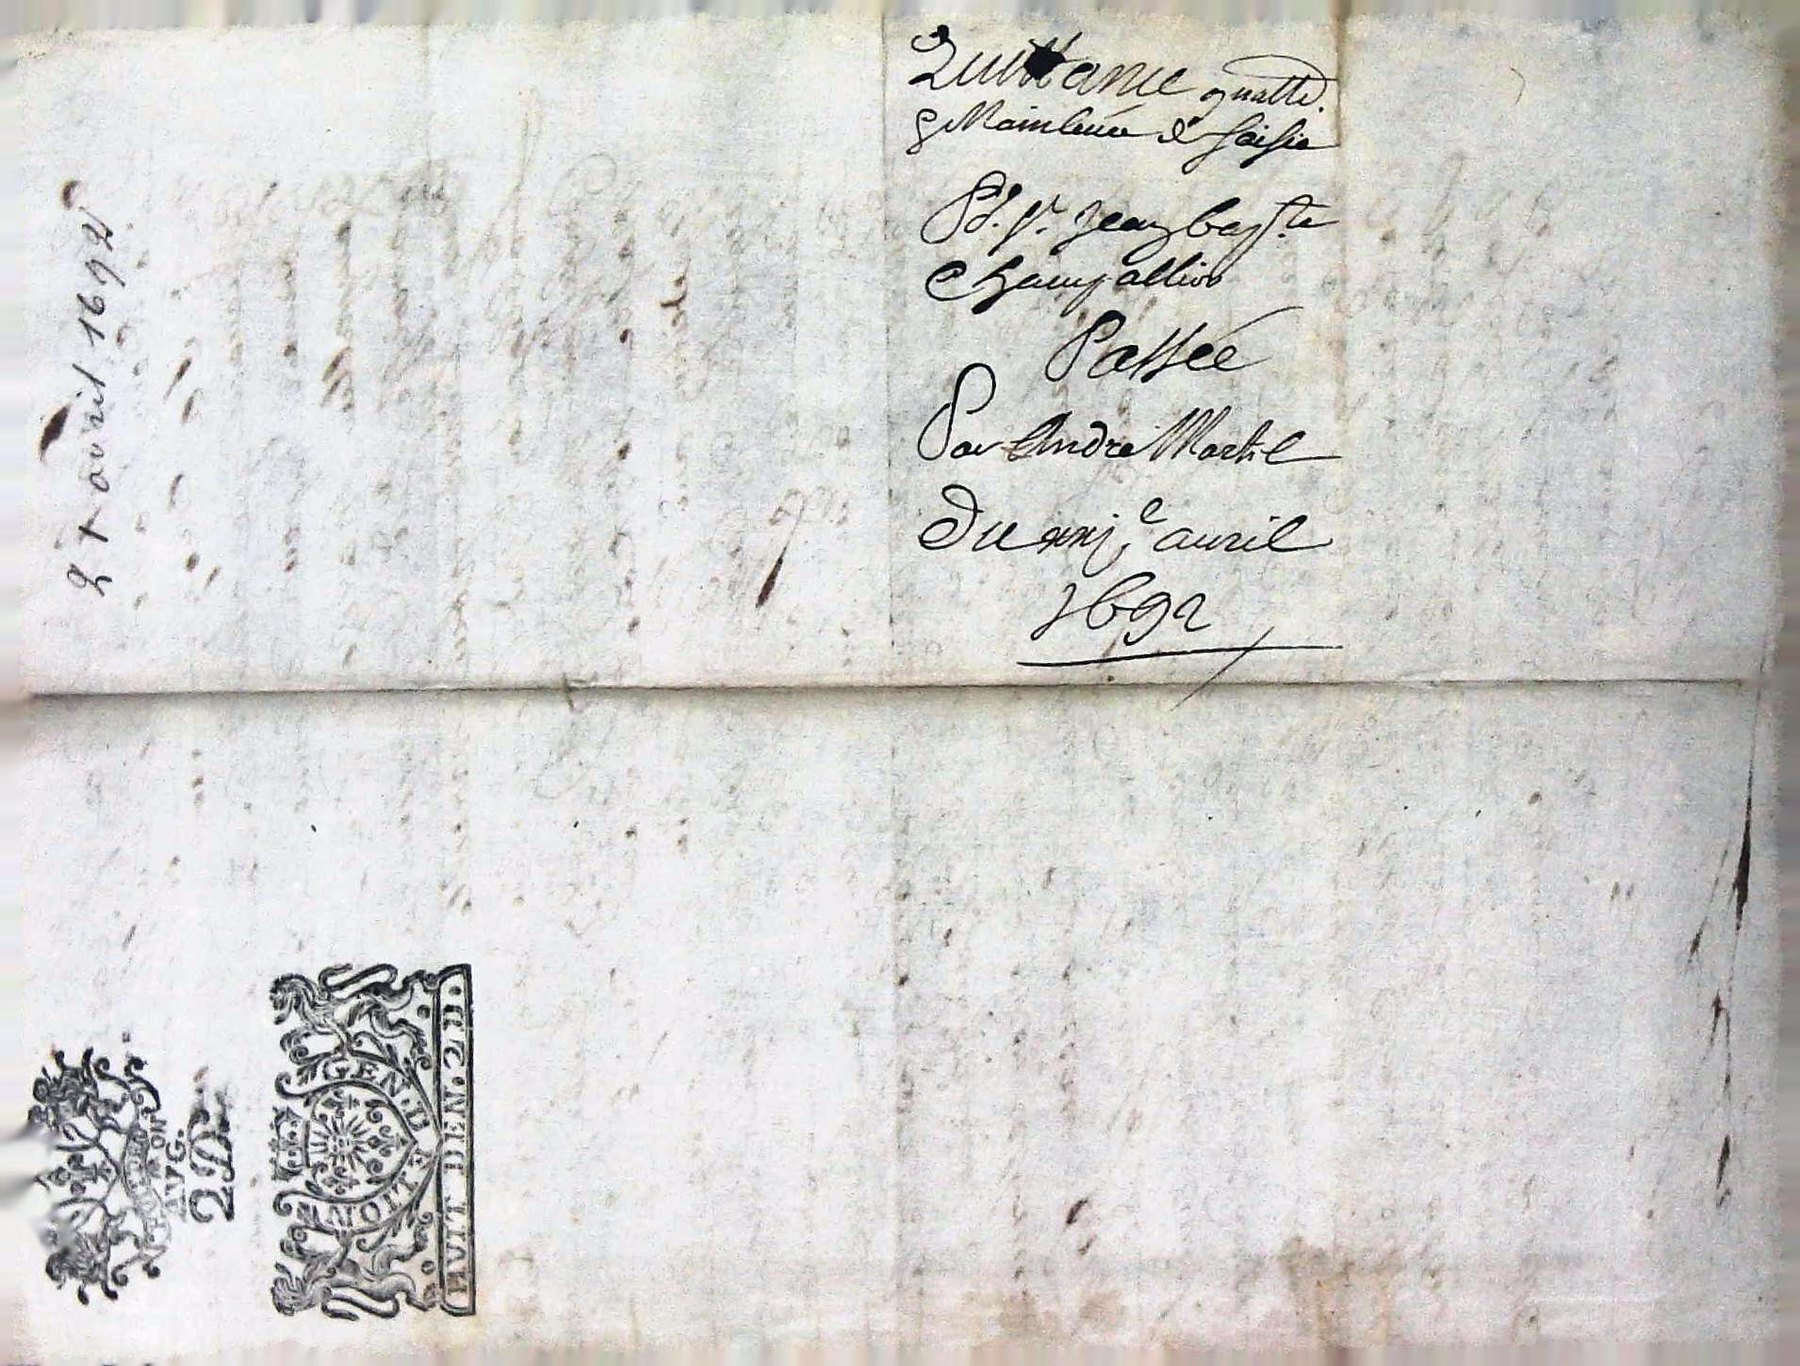 Quittance quatt.
& Mainleuée de saisie
Pr. Sr. Jean bapte
Champallier
Passée
Par André Martel
Du xxje auril
1692
21 avril 1692
GEN. D
HUIT DEN. 2 D.
AVG.
2 D